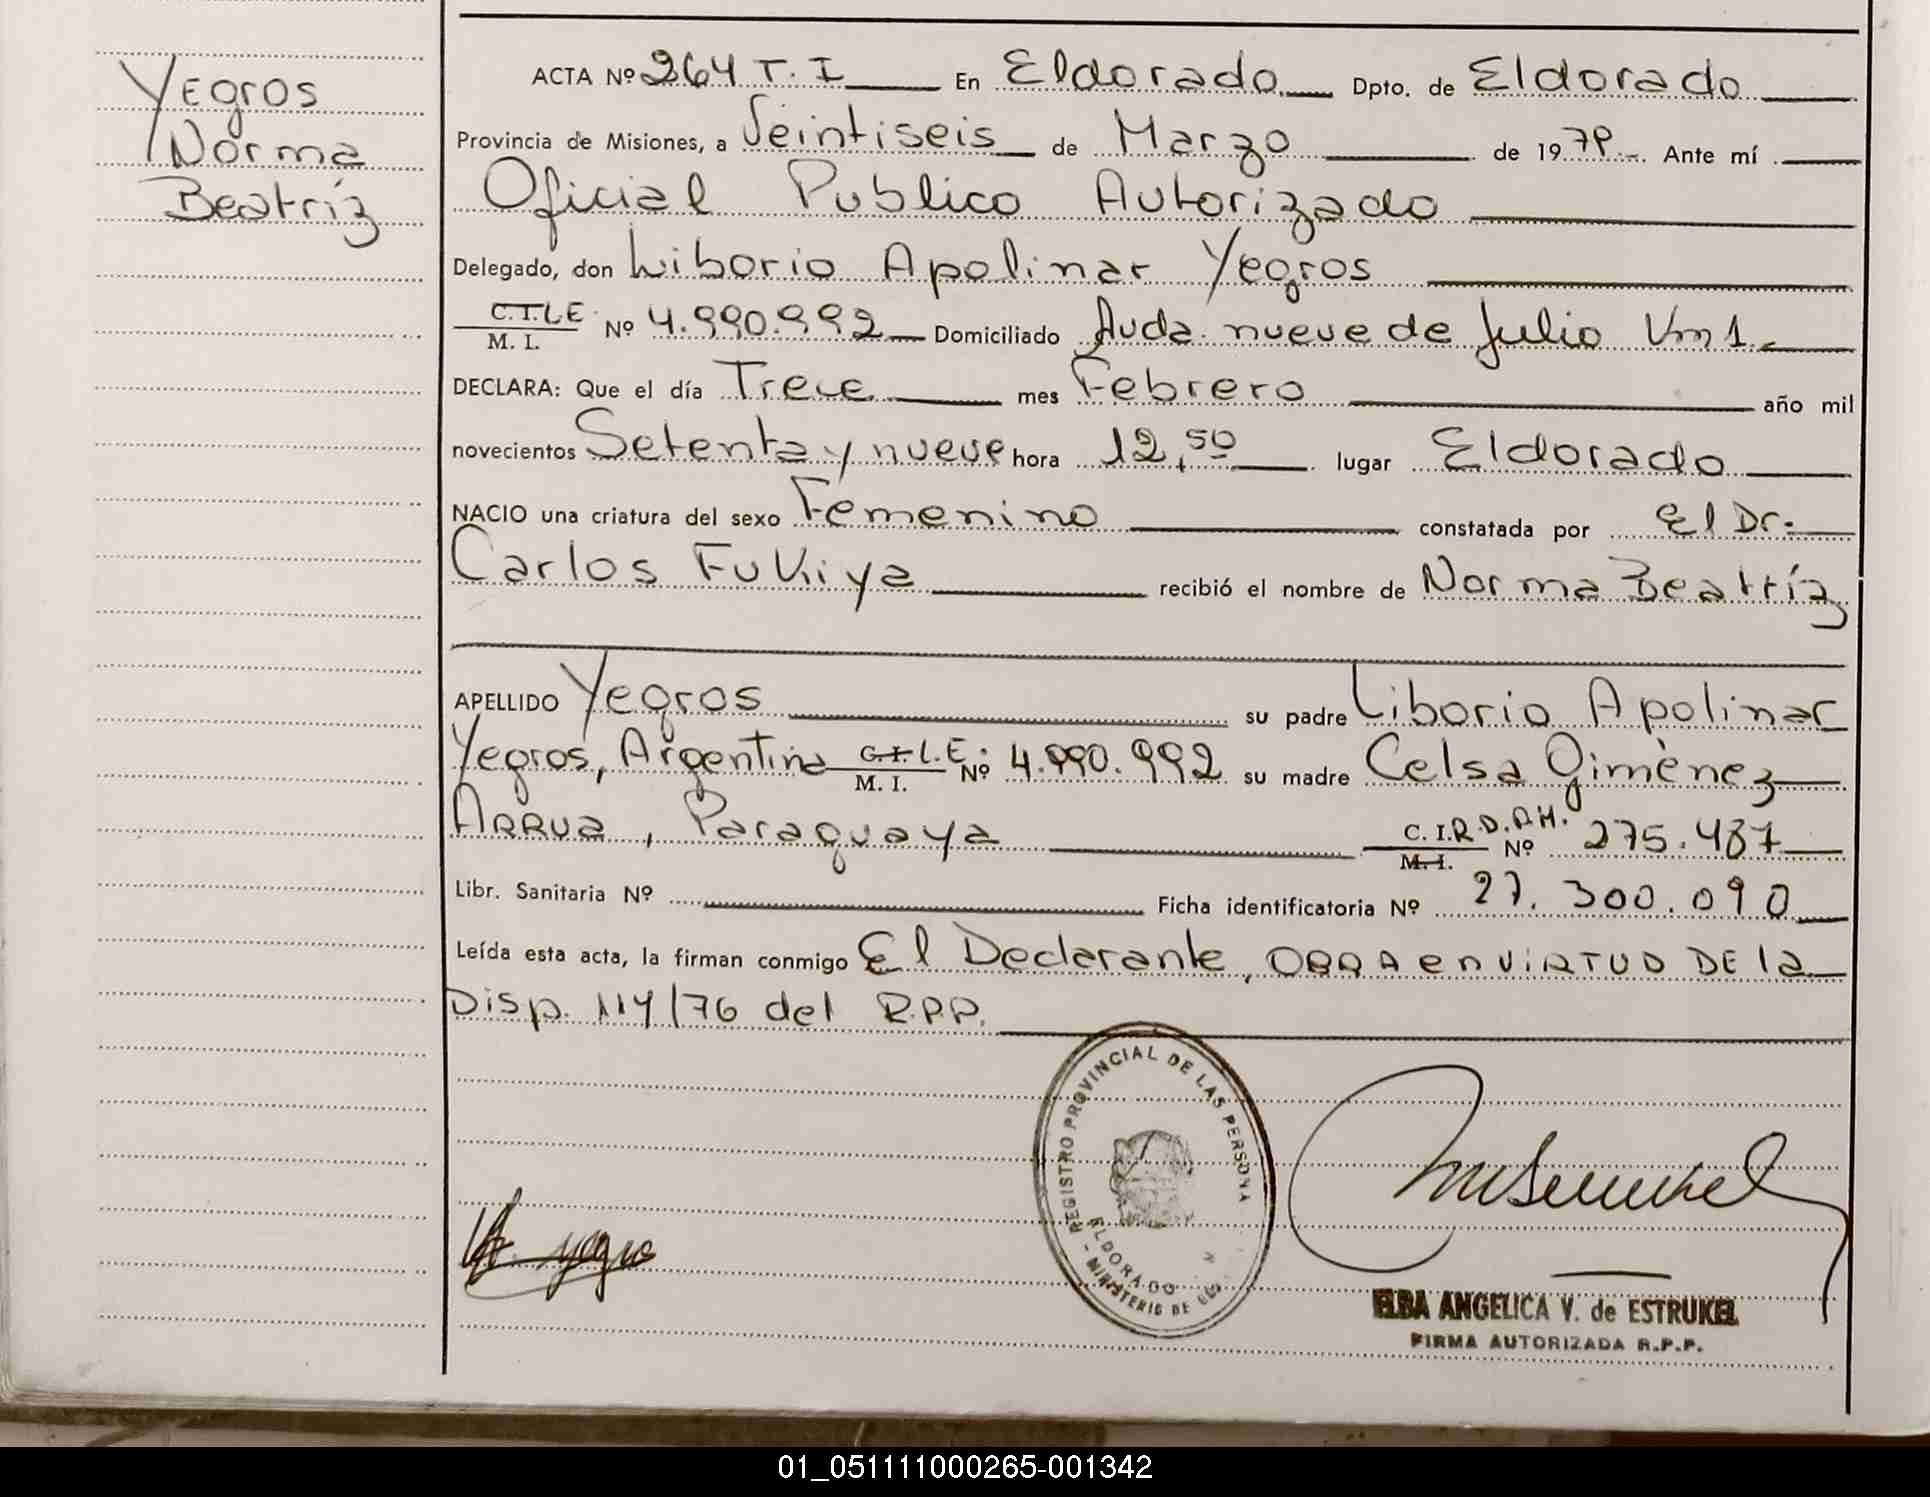 Yegros
Norma
Beatríz
ACTA Nº 264 T. I En Eldorado Dpto. de Eldorado
Provincia de Misiones, a Veintiseis de Marzo de 1979 Ante mí
Oficial Publico Autorizado
Delegado, don Liborio Apolinar Yegros
C.I.L.E. M. I. Nº 4.990.992 Domiciliado Avda. nueve de Julio Km 1.
DECLARA: Que el día Trece mes Febrero año mil
novecientos Setenta y nueve hora 12,50 lugar Eldorado
NACIO una criatura del sexo Femenino constatada por El Dr.
Carlos Fukiya recibió el nombre de Norma Beatríz
APELLIDO Yegros su padre Liborio Apolinar
Yegros, Argentino C.I.L.E. M. I. Nº 4.990.992 su madre Celsa Giménez
Arrua, Paraguaya C. I. R.D.P.M. M. I. Nº 275.487
Libr. Sanitaria Nº Ficha identificatoria Nº 27.300.090
Leída esta acta, la firman conmigo El Declarante, OBRA en VIRTUD DE la
Disp. 114/76 del R.P.P.
REGISTRO PROVINCIAL DE LAS PERSONA
ELDORADO
MINISTERIO DE
ELBA ANGELICA V. de ESTRUKEL
FIRMA AUTORIZADA R.P.P.
01_051111000265-001342